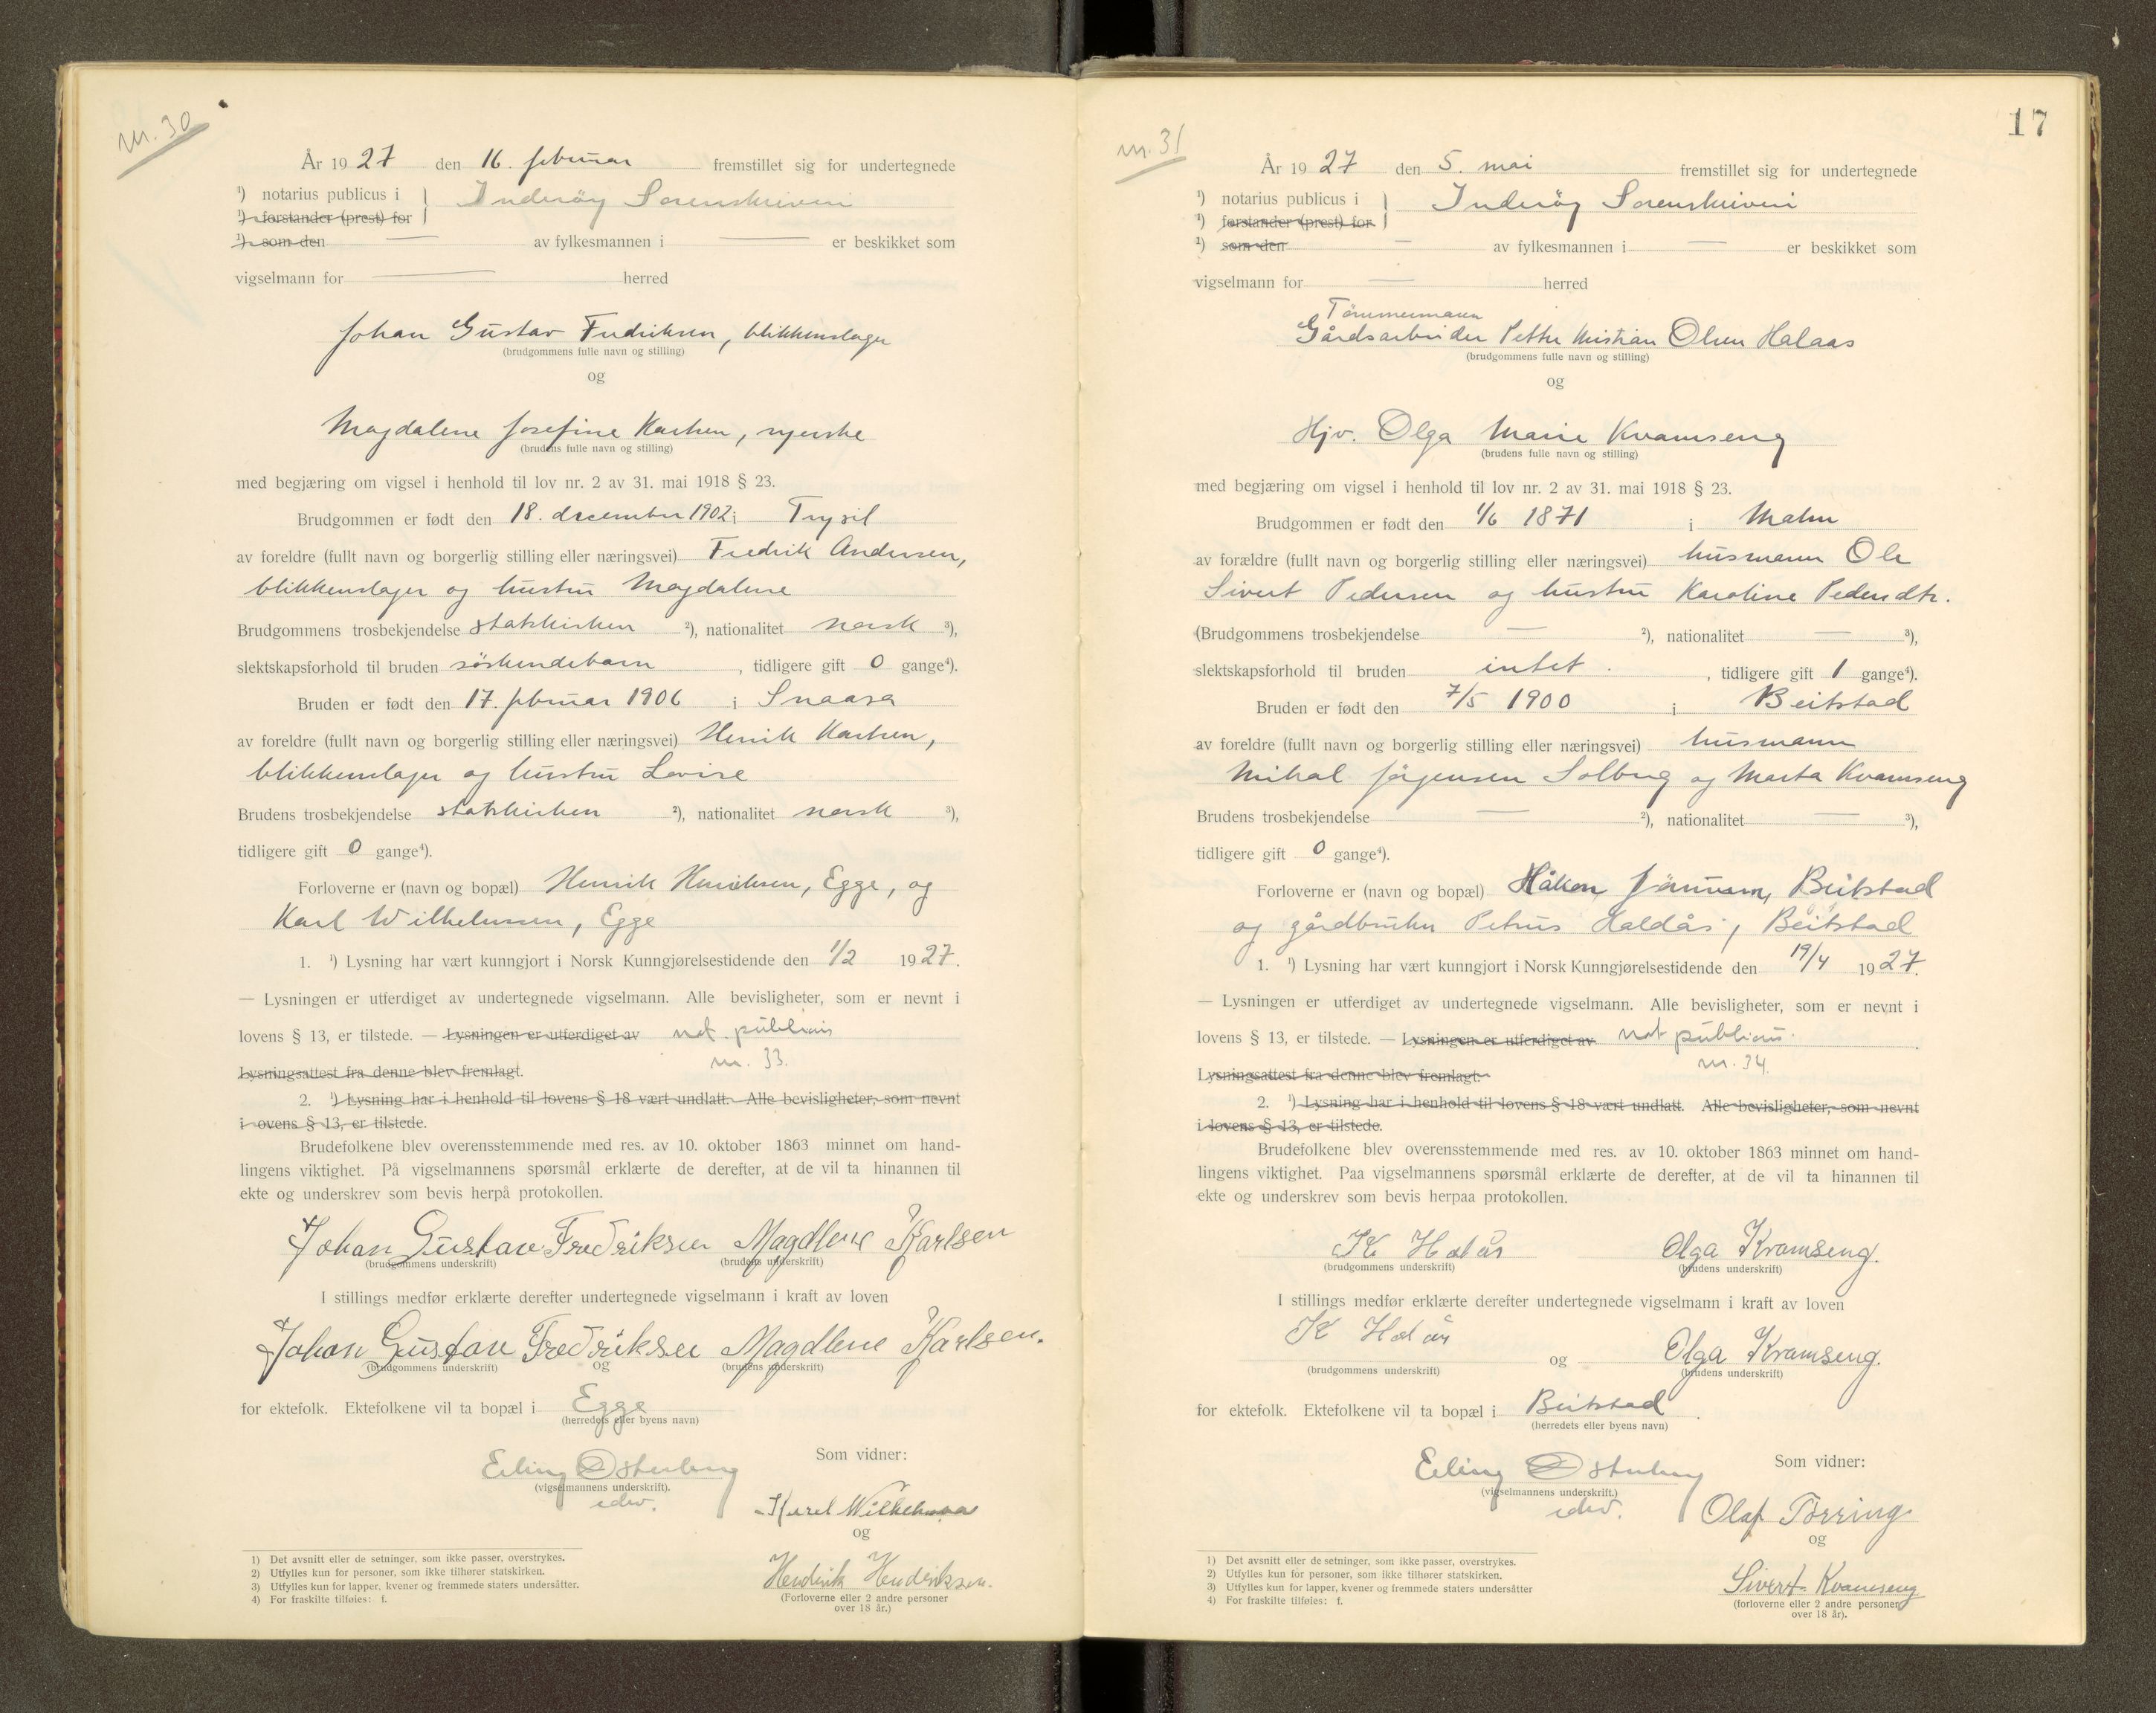 nr. 30
År 1927 den 16. februar fremstillet sig for undertegnede
¹) notarius publicus i } Inderøy Sorenskriveri
¹) forstander (prest) for
¹) som den — av fylkesmannen i — er beskikket som
vigselmann for — herred
Johan Gustav Fredriksen, blikkenslager
(brudgommens fulle navn og stilling)
og
Magdalene Josefine Karlsen, syerske
(brudens fulle navn og stilling)
med begjæring om vigsel i henhold til lov nr. 2 av 31. mai 1918 § 23.
Brudgommen er født den 18. december 1902 i Trysil
av foreldre (fullt navn og borgerlig stilling eller næringsvei) Fredrik Andersen,
blikkenslager og hustru Magdalene
Brudgommens trosbekjendelse statskirken ²), nationalitet norsk ³),
slektskapsforhold til bruden söskendebarn, tidligere gift 0 gange⁴).
Bruden er født den 17. februar 1906 i Snaasa
av foreldre (fullt navn og borgerlig stilling eller næringsvei) Henrik Karlsen,
blikkenslager og hustru Lovise
Brudens trosbekjendelse statskirken ²), nationalitet norsk ³),
tidligere gift 0 gange⁴).
Forloverne er (navn og bopæl) Henrik Henriksen, Egge, og
Karl Wilhelmsen, Egge
1. ¹) Lysning har vært kunngjort i Norsk Kunngjørelsestidende den 1/2 1927.
— Lysningen er utferdiget av undertegnede vigselmann. Alle bevisligheter, som er nevnt i
lovens § 13, er tilstede. — Lysningen er utferdiget av not. publicus
nr. 33.
Lysningsattest fra denne blev fremlagt.
2. ¹) Lysning har i henhold til lovens § 18 vært undlatt. Alle bevisligheter, som nevnt
i ovens § 13, er tilstede.
Brudefolkene blev overensstemmende med res. av 10. oktober 1863 minnet om hand-
lingens viktighet. På vigselmannens spørsmål erklærte de derefter, at de vil ta hinannen til
ekte og underskrev som bevis herpå protokollen.
Johan Gustav Fredriksen Magdlene Karlsen
(brudgommens underskrift) (brudens underskrift)
I stillings medfør erklærte derefter undertegnede vigselmann i kraft av loven
Johan Gustav Fredriksen Magdlene Karlsen.
(brudgommens underskrift) og (brudens underskrift)
for ektefolk. Ektefolkene vil ta bopæl i Egge
(herredets eller byens navn)
Erling Østerberg Som vidner:
(vigselmannens underskrift).
edsv.
Karel Wilhelmsen
og
Hendrik Hendriksen.
(Forloverne eller 2 andre personer
over 18 år.)
1) Det avsnitt eller de setninger, som ikke passer, overstrykes.
2) Utfylles kun for personer, som ikke tilhører statskirken.
3) Utfylles kun for lapper, kvener og fremmede staters undersåtter.
4) For fraskilte tilføies: f.
17
nr. 31
År 1927 den 5. mai fremstillet sig for undertegnede
¹) notarius publicus i } Inderøy Sorenskriveri
¹) forstander (prest) for
¹) som den — av fylkesmannen i — er beskikket som
vigselmann for — herred
Tømmermann
Gårdsarbeider Petter Kristian Olsen Halaas
(brudgommens fulle navn og stilling)
og
Hjv. Olga Marie Kvamseng
(brudens fulle navn og stilling)
med begjæring om vigsel i henhold til lov nr. 2 av 31. mai 1918 § 23.
Brudgommen er født den 1/6 1871 i Malm
av forældre (fullt navn og borgerlig stilling eller næringsvei) husmann Ole
Sivert Pedersen og hustru Karoline Pedersdtr.
(Brudgommens trosbekjendelse — ²), nationalitet — ³),
slektskapsforhold til bruden intet., tidligere gift 1 gange⁴).
Bruden er født den 7/5 1900 i Beitstad
av foreldre (fullt navn og borgerlig stilling eller næringsvei) husmann
Mikal Jörgensen Solberg og Marta Kvamseng
Brudens trosbekjendelse — ²), nationalitet — ³),
tidligere gift 0 gange⁴).
Forloverne er (navn og bopæl) Håkon Jönnum, Beitstad
og gårdbruker Petrus Haldås, Beitstad
1. ¹) Lysning har vært kunngjort i Norsk Kunngjørelsestidende den 19/4 1927.
— Lysningen er utferdiget av undertegnede vigselmann. Alle bevisligheter, som er nevnt i
lovens § 13, er tilstede. — Lysningen er utferdiget av not publicus.
nr. 34.
Lysningsattest fra denne blev fremlagt.
2. ¹) Lysning har i henhold til lovens § 18 vært undlatt. Alle bevisligheter, som nevnt
i lovens § 13, er tilstede.
Brudefolkene blev overensstemmende med res. av 10. oktober 1863 minnet om hand-
lingens viktighet. Paa vigselmannens spørsmål erklærte de derefter, at de vil ta hinannen til
ekte og underskrev som bevis herpaa protokollen.
K Halås Olga Kvamseng.
(brudgommens underskrift) (brudens underskrift)
I stillings medfør erklærte derefter undertegnede vigselmann i kraft av loven
K Halås og Olga Kvamseng.
(brudgommens underskrift) (brudens underskrift)
for ektefolk. Ektefolkene vil ta bopæl i Beitstad.
(herredets eller byens navn)
Erling Østerberg Som vidner:
(vigselmannens underskrift.)
edsv.
Olaf Tørring
og
Sivert Kvamseng
(forloverne eller 2 andre personer
over 18 år).
1) Det avsnitt eller de setninger, som ikke passer, overstrykes.
2) Utfylles kun for personer, som ikke tilhører statskirken.
3) Utfylles kun for lapper, kvener og fremmede staters undersåtter
4) For fraskilte tilføies: f.